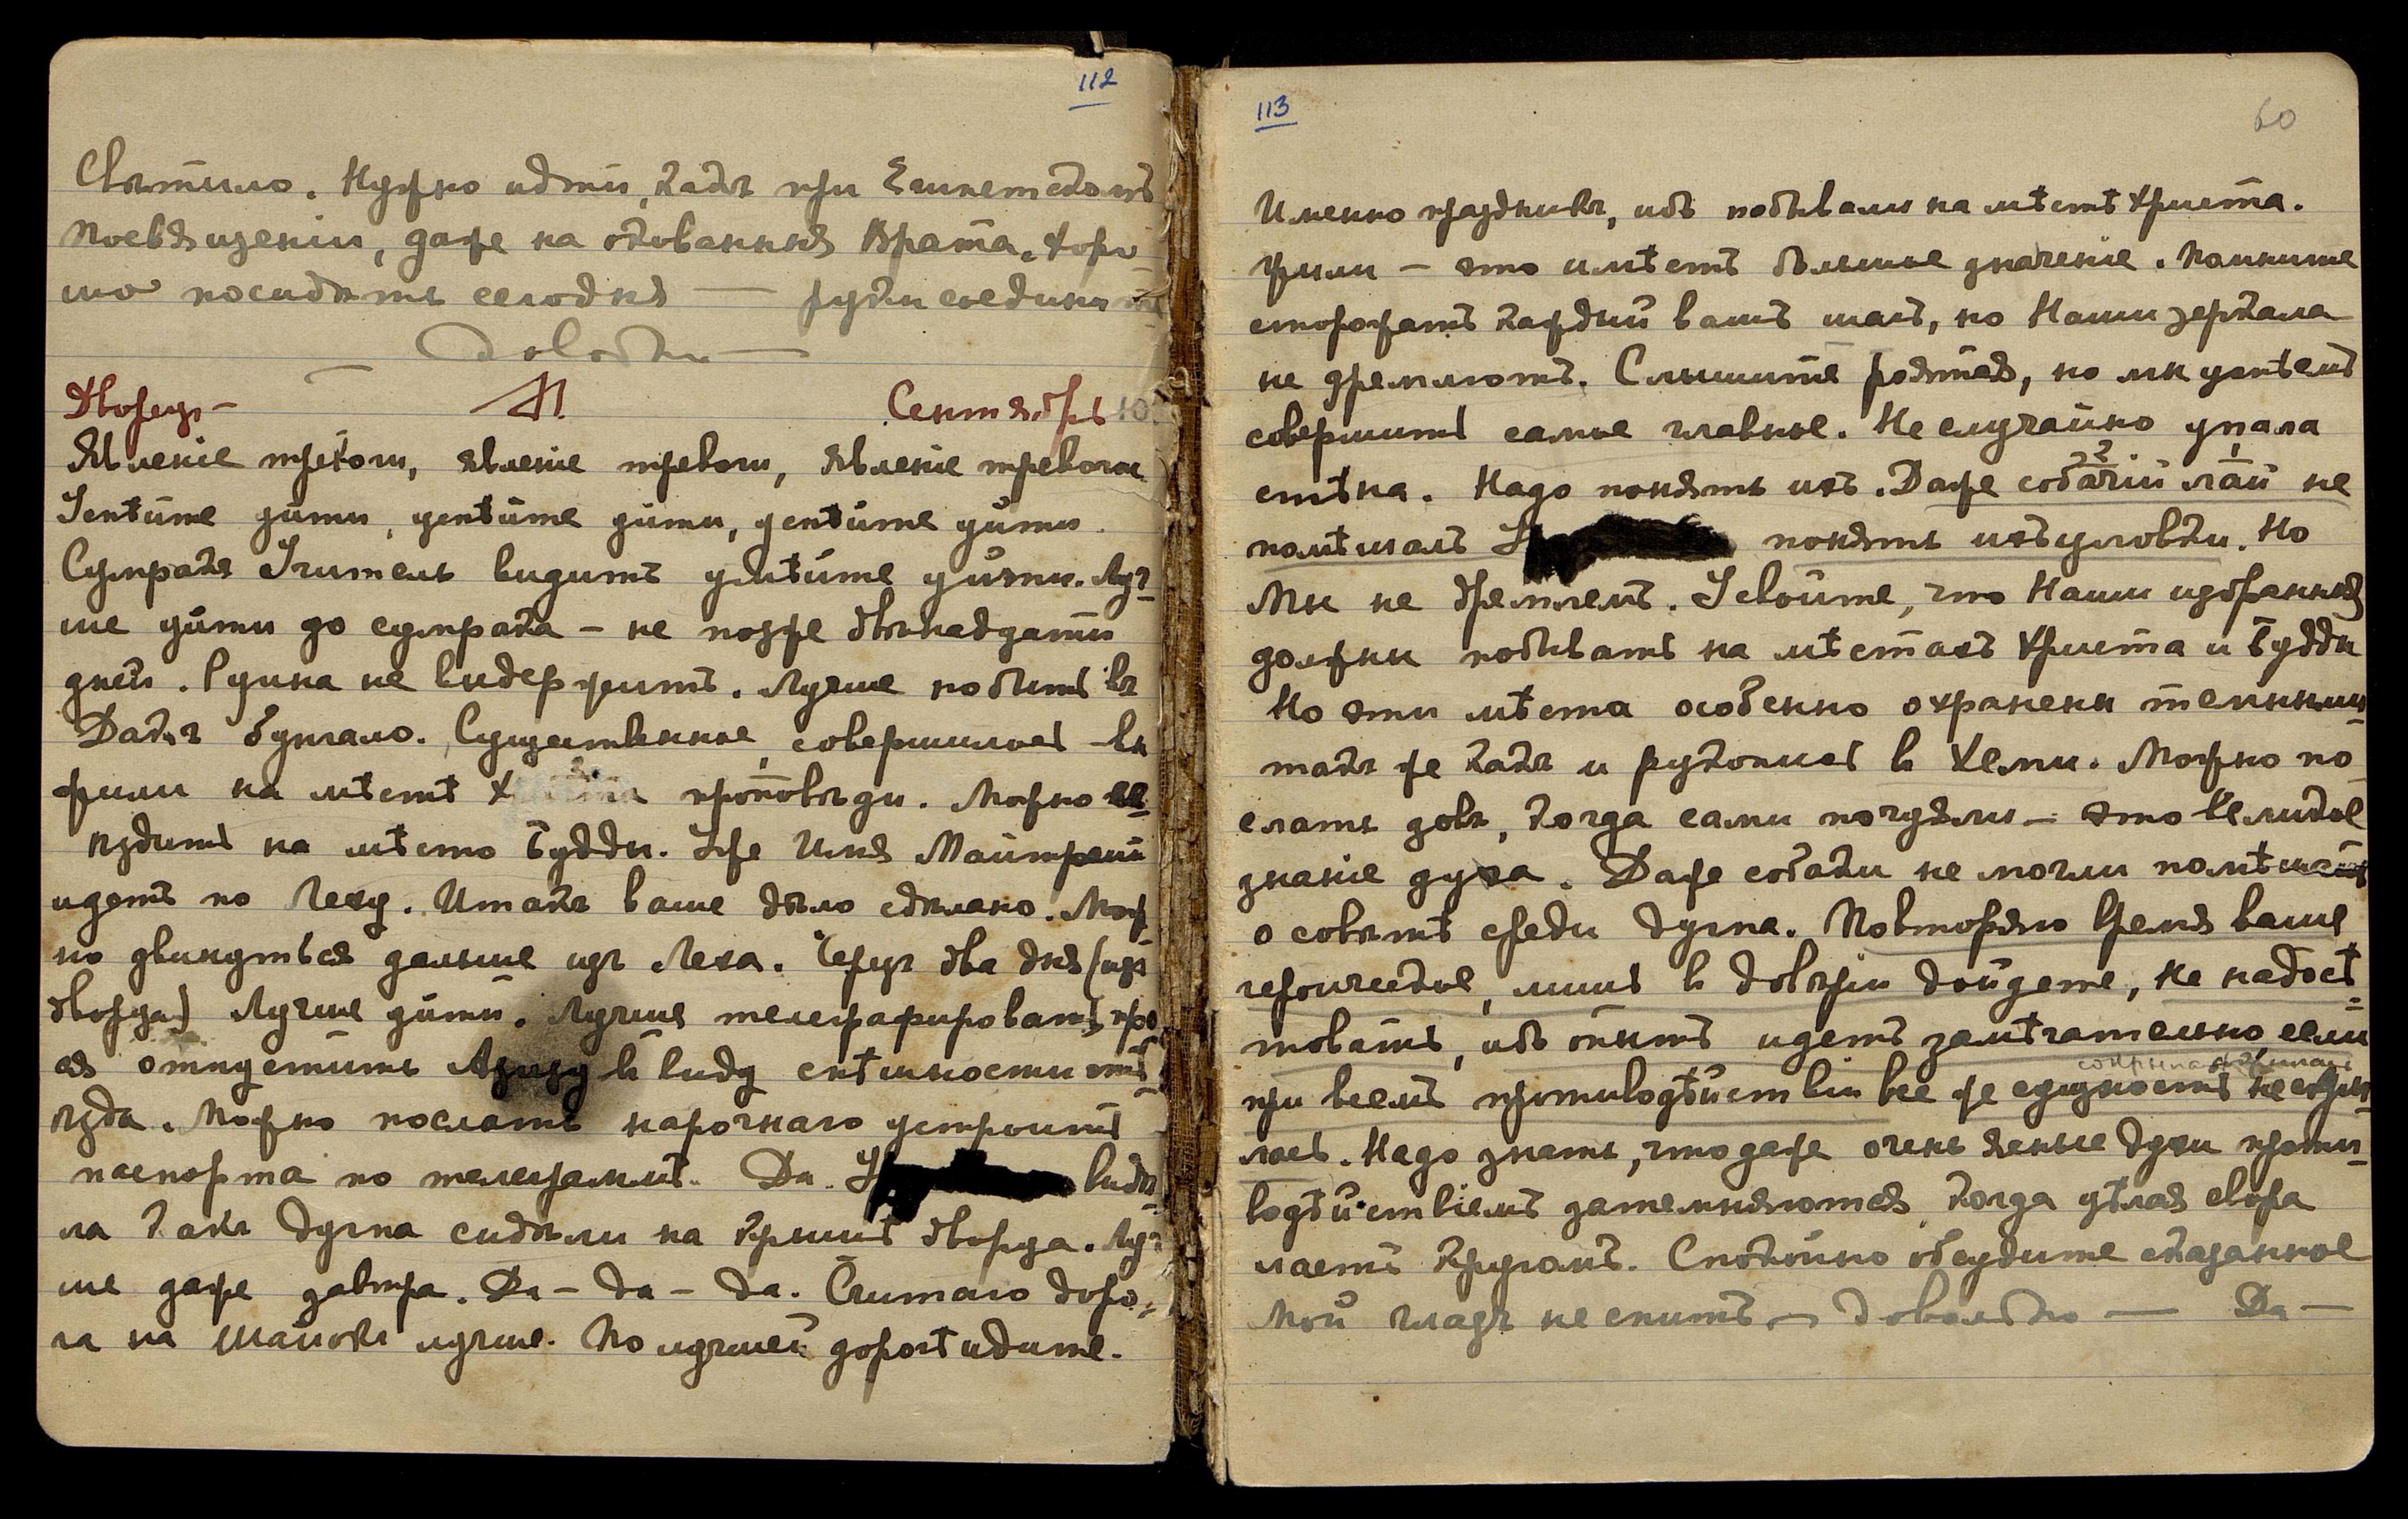 112
Святило. Нужно идти, какъ при Египетскомъ
посвященіи, даже на окованныя врата. Хоро-
шо посидѣть сегодня — руки соедини
Довольно —
Дворец — М. Сентябрь 10.
Явленіе тревоги, явленіе тревоги, явленіе тревоги
Успѣйте уйти, успѣйте уйти, успѣйте уйти.
Сумракъ Учитель видитъ умѣйте уйти. Луч-
ше уйти до сумрака — не позже двѣнадцати
дней. Руина не выдержитъ. Лучше побыть въ
Дакъ бунгало. Существенное совершилось — вы
жили на мѣстѣ Христа проповѣди. Можно
ѣздить на мѣсто Будды. Уже Имя Майтреи
идетъ по Леху. Итакъ ваше дѣло сдѣлано. Мож
но двинуться дальше изъ Леха. Черезъ два дня (изъ
дворца) Лучше уйти. Лучше телеграфировать про
ся отпустить въ виду снѣжности отъ-
ѣзда. Можно послать нарочнаго устроить
паспорта по телеграммѣ. Да. У видѣ-
ла какъ дугпа сидѣли на крышѣ дворца. Луч-
ше даже завтра. Да — да — да. Считаю доро-
га на Шайокъ лучше. По лучшей дорогѣ идите.
113
60
Именно праздникъ, ибо побывали на мѣстѣ Христа.
жили — это имѣетъ большое значеніе. Помните
сторожатъ каждый вашъ шагъ, но Наши зеркала
не дремлютъ. Слышите роятся, но мы успѣемъ
совершить самое главное. Не случайно упала
стѣна. Надо понять ихъ. Даже собачій лай не
помѣшалъ У понять ихъ уловки. Но
Мы не дремлемъ. Усвойте, что Наши избранныя
должны побывать на мѣстахъ Христа и Будды
Но эти мѣста особенно охранены темными
такъ же какъ и рукопись в Хеми. Можно по-
слать зовъ, когда сами почуяли — это великое
знаніе духа. Даже собаки не могли помѣшать
о совѣтѣ среди дугпа. Повторяю Время ваше
героическое, лишь в довѣріи дойдете, не надо сѣ-
товать, ибо опытъ идетъ замѣчательно если
при всемъ противодѣйствіи все же сущность не скры-
лась. Надо знать, что даже очень ясные духи проти-
водѣйствіемъ затемняются когда цѣлая свора
лаетъ кругомъ. Спокойно обсудите сказанное
Мой глазъ не спитъ — довольно — Да —